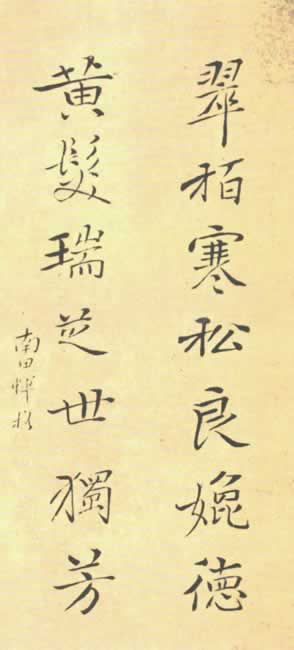 翠栢寒松良媲德
黄髮瑞芝世獨芳
南田惲格